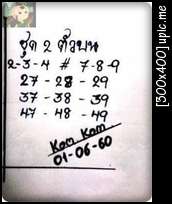 ชุด 2 ตัวบน
2-3-4 # 7-8-9
27 - 28 - 29
37 - 38 - 39
47 - 48 - 49
Kom Kom
01-06-60
[300x400] upic.me